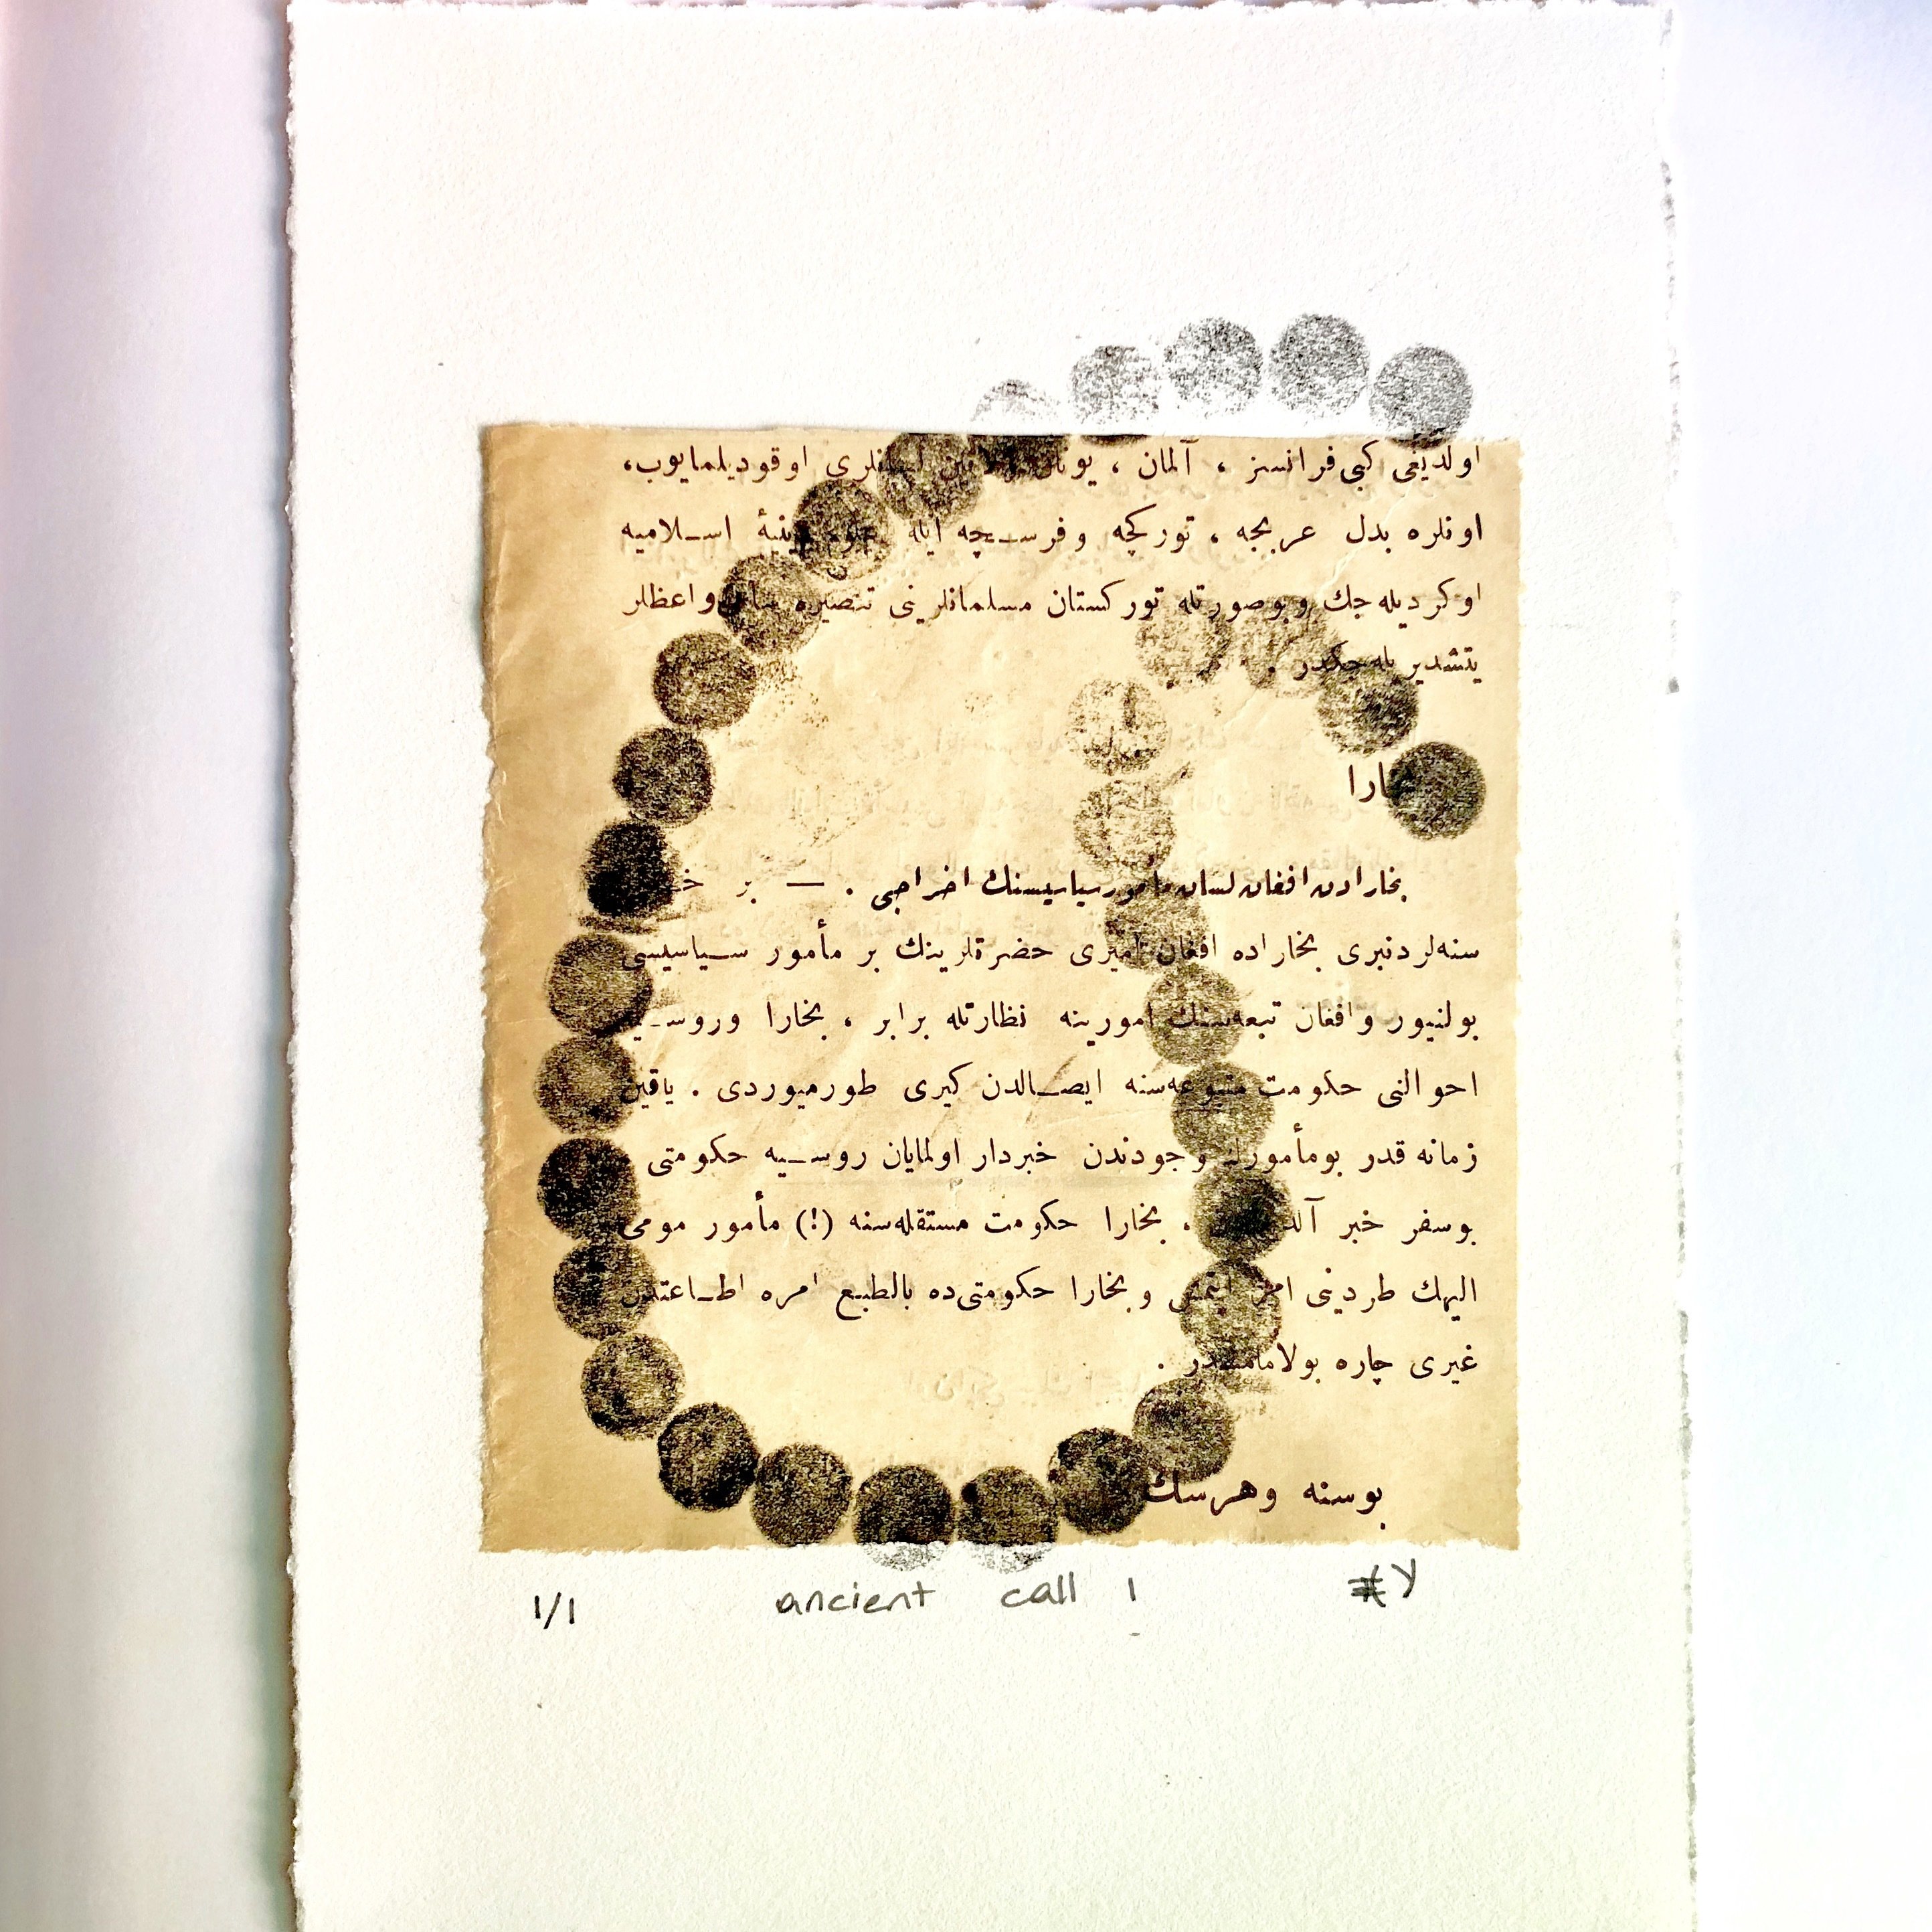 اولدیغی کبی فرانسز ، آلمان ، اوقودیلمایوب،
اونلره بدل عربجه ، تورکچه وفرسـچه ایله اسـلامیه
اوکردیله‌جك وبوصورتله تورکستان مسلمانلرینی تنصیره واعظلر
یتشدیریله‌جکدر
بخارادن افغان لسان مأمور سیاسیسنك اخراجی . — بر
سنه‌لردنبری بخاراده افغان امیری حضرتلرینك بر مأمور سـیاسیسی
بولنیور وافغان تبعه‌سنك امورینه نظارتله برابر ، بخارا
احوالنی حکومت متبوعه‌سنه ایصـالدن کیری طورمیوردی . یاقین
زمانه قدر بومأمورك وجودندن خبردار اولمایان روسـیه حکومتی
بوسفر خبر ، بخارا حکومت مستقله‌سنه (!) مأمور مومی
الیهك طردینی امر ایتمش وبخارا حکومتی‌ده بالطبع امره اطـاعتدن
غیری چاره بولامامشدر .
بوسنه وهرسك
1/1 ancient call 1